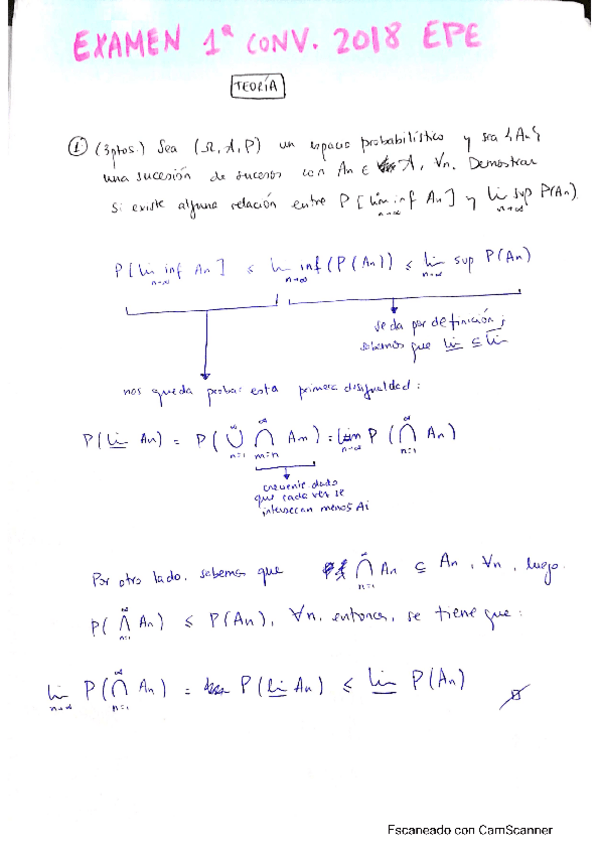 EXAMEN 1ª CONV. 2018 EPE
TEORÍA
① (3ptos.) Sea (Ω, A, P) un espacio probabilístico y sea {An}
una sucesión de sucesos con An ∈ A, ∀n. Demostrar
si existe alguna relación entre P[lim inf An] y lim sup P(An).
n→∞ n→∞
P[lim inf An] ≤ lim inf (P(An)) ≤ lim sup P(An)
n→∞ n→∞ n→∞
se da por definición,
sabemos que lim ⊆ lim
nos queda probar esta primera desigualdad:
P(lim An) = P(⋃ ⋂ Am) = lim P(⋂ An)
n=1 m=n n→∞ n=1
creciente dado
que cada vez se
intersecan menos Ai
Por otro lado, sabemos que ⋂ An ⊆ An, ∀n, luego
n=1
P(⋂ An) ≤ P(An), ∀n, entonces, se tiene que:
n=1
lim P(⋂ An) = P(lim An) ≤ lim P(An)
n→∞ n=1
Escaneado con CamScanner